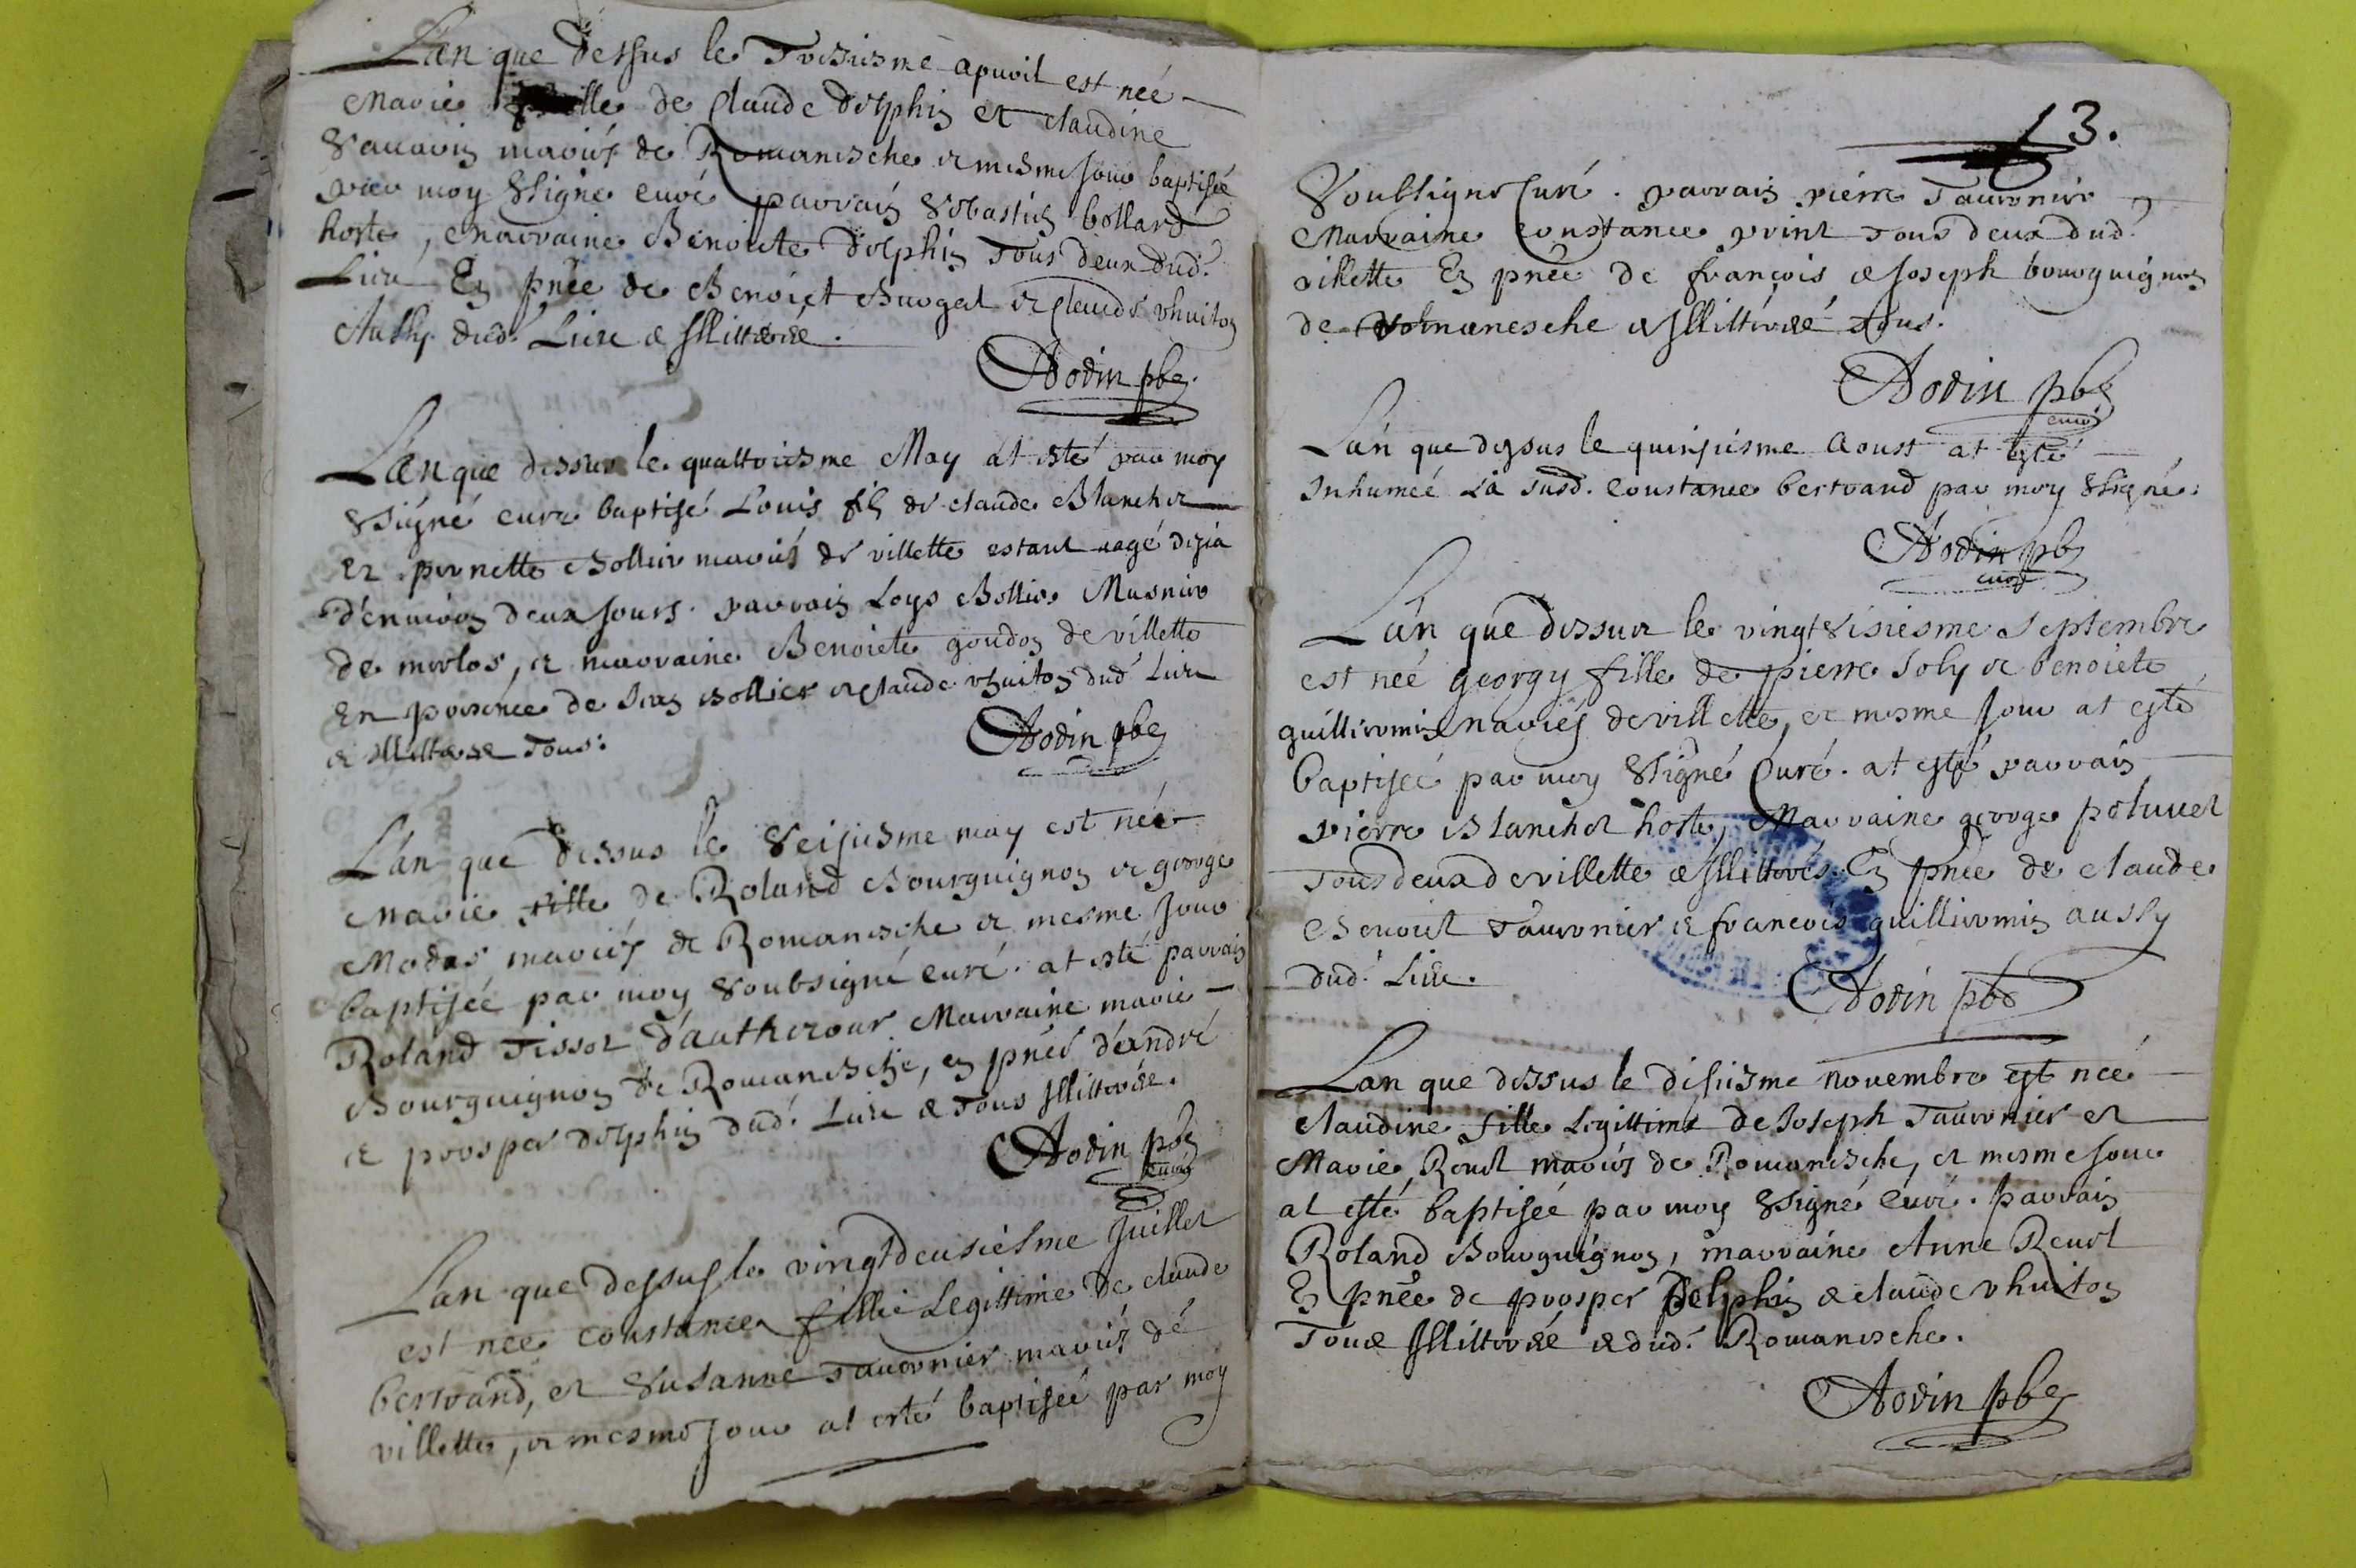 L'an que dessus le troisiesme apvril est née
Marie fille de Claude dolphin et claudine
mariés de Romanesche et mesme jour baptisée
par moy ssigné curé parrain sebastien bollard
hoste, marraine Benoite dolphin tous deux dud.
Lieu En pnce de Benoict Burgat et claude
Aussy dud. Lieu & Illitteré.
Aodin pbr
L'an que dessus le quattriesme May at esté par moy
ssigné curé baptisé Louis fils de claude Blanchet
et pernette Bollier mariés de villette estant aagé desja
d'environ deux jours. parrain Loys Bollier Musnier
de merlos, et marraine Benoiete goudon de villette
En presence de Jean Bollier et claude dud Lieu
& Illitteré tous.
Aodin pbr
L'an que dessus le seisiesme may est née
Marie fille de Roland Bourguignon et george
Modas mariés de Romanesche et mesme jour
baptisée par moy soubsigné curé. at esté parrain
Roland Tissot d'autherour Marraine marie
Bourguignon de Romanesche, en pnce d'andré
et prosper dolphin dud. Lieu & tous Illitteré.
Aodin pbr
curé
L'an que dessus le vingtdeusiesme Juillet
est née constance fillie Legittime de claude
bertrand, et Susanne Tavernier mariés de
villette, et mesme jour at esté baptiseé par moy
13.
Soubsigné Curé. parrain pierre Tavernier
Marraine constance print tous deux dud.
villette En pnce de françois & Joseph bourguignon
de Romanesche & Illitteré tous.
Aodin pbr
curé
L'an que dessus le quinsiesme Aoust at esté
Inhumeé La susd. constance bertrand par moy ssigné.
Aodin pbr
curé
L'an que dessus le vingtsisiesme Septembre
est née georgy fille de pierre Joly et benoiete
guillermin mariés de villette, et mesme jour at esté
baptiseé par moy ssigné Curé. at esté parrain
pierre Blanchet hoste, Marraine george
tous deux de villette & Illitterés. En pnce de claude
Benoict Tavernier et francois guillermin aussy
dud. Lieu.
Aodin pbr
L'an que dessus le disiesme novembre est née
claudine fille Legittime de Joseph Tavernier et
Marie mariés de Romanesche, et mesme jour
at esté baptiseé par moy ssigné Curé. parrain
Roland Bourguignon, marraine Anne
En pnce de prosper Delphin & claude
Tous Illitteré & dud. Romanesche.
Aodin pbr